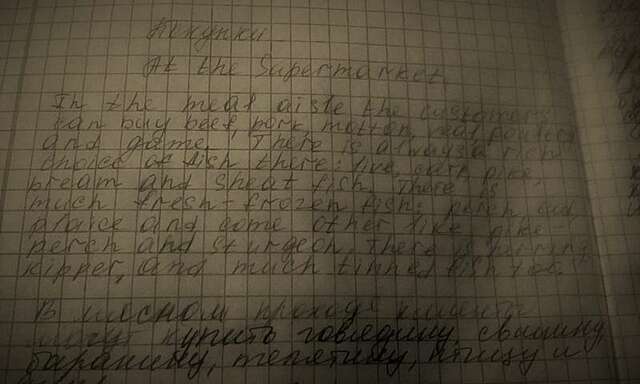 At the Supermarket
In the meat aisle the customers
can buy beef, pork, motton, veal, poultry
and game. There is always a rich
choice of fish there: live, carp, pike
bream and sheat fish. There is
much fresh-frozen fish: perch, cod,
plaice and some other like pike-
perch and sturgeon. There is herring,
kipper, and much tinned fish too.
В мясном проходе клиенты
могут купить говядину, свинину,
баранину, телятину, птицу и